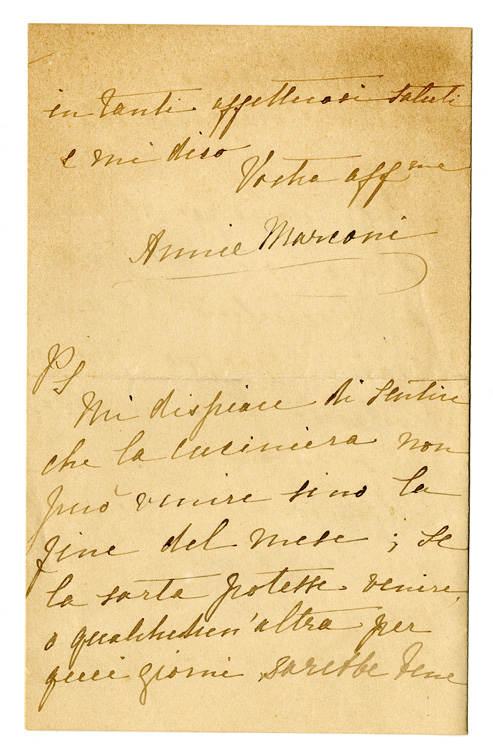 in tanti affettuosi saluti
e mi dico
Vostra aff me
Annie Marconi
PS
Mi dispiace di sentire
che la cuciniera non
può venire sino la
fine del mese ; se
la sarta potesse venire
o qualchedun'altra per
quei giorni sarebbe bene